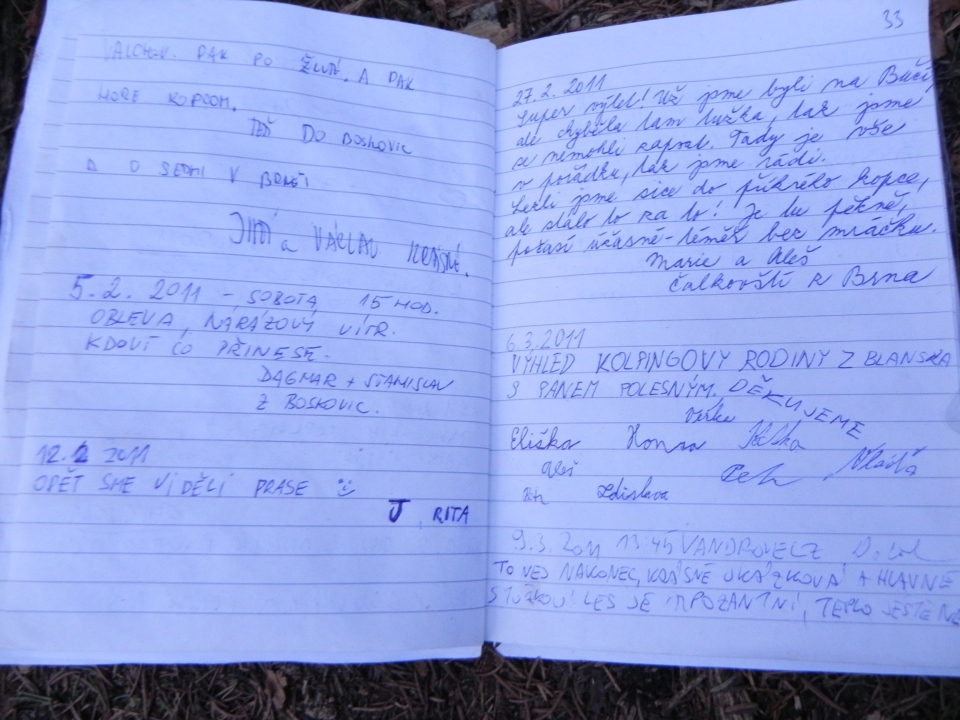 VALCHOV. PAK PO ŽLUTÉ. A PAK
HORE KOPCOM.
TEĎ DO BOSKOVIC
A O SEDMI V
JIŘÍ a VÁCLAV
5.2. 2011 - SOBOTA 15 HOD.
OBLEVA, NÁRAZOVÝ VÍTR.
KDOVÍ CO PŘINESE.
DAGMAR + STANISLAV
Z BOSKOVIC.
12.2 2011
OPĚT SME VIDĚLI PRASE
J, RITA
33
27.2.2011
Super výlet! Už jsme byli na
ale chyběla tam tužka, tak jsme
se nemohli zapsat. Tady je vše
v pořádku, tak jsme rádi.
Lezli jsme sice do příkrého kopce,
ale stálo to za to! Je tu pěkně,
počasí úžasné - téměř bez mráčku.
Marie a Aleš
Čalkovští z Brna
6.3.2011
VÝHLED KOLPINGOVY RODINY Z BLANSKA
S PANEM POLESNÝM. DĚKUJEME
Eliška Honza
Aleš
Zdislava
9.3.2011 13 45
TO NEJ NAKONEC, KRÁSNÉ UKÁZKOVÁ A HLAVNĚ
S TUŽKOU! LES JE IMPOZANTNÍ, TEPLO JEŠTĚ NE